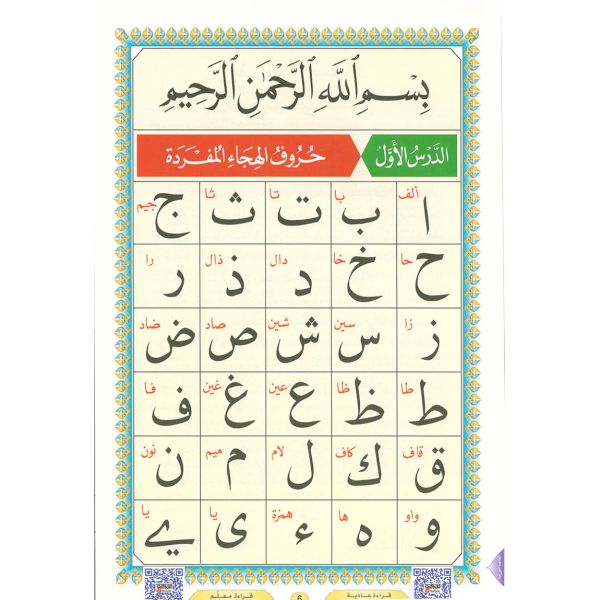 بِسْمِ ٱللَّهِ ٱلرَّحْمَٰنِ ٱلرَّحِيمِ
الدَّرْسُ الْأَوَّلُ حُرُوفُ الهِجَاءِ المُفْرَدَة
ألف با تا ثا جيم
ا ب ت ث ج
حا خا دال ذال را
ح خ د ذ ر
زا سين شين صاد ضاد
ز س ش ص ض
طا ظا عين غين فا
ط ظ ع غ ف
قاف كاف لام ميم نون
ق ك ل م ن
واو ها همزة يا يا
و ه ء ى ي
قراءة عادية 6 قراءة معلم